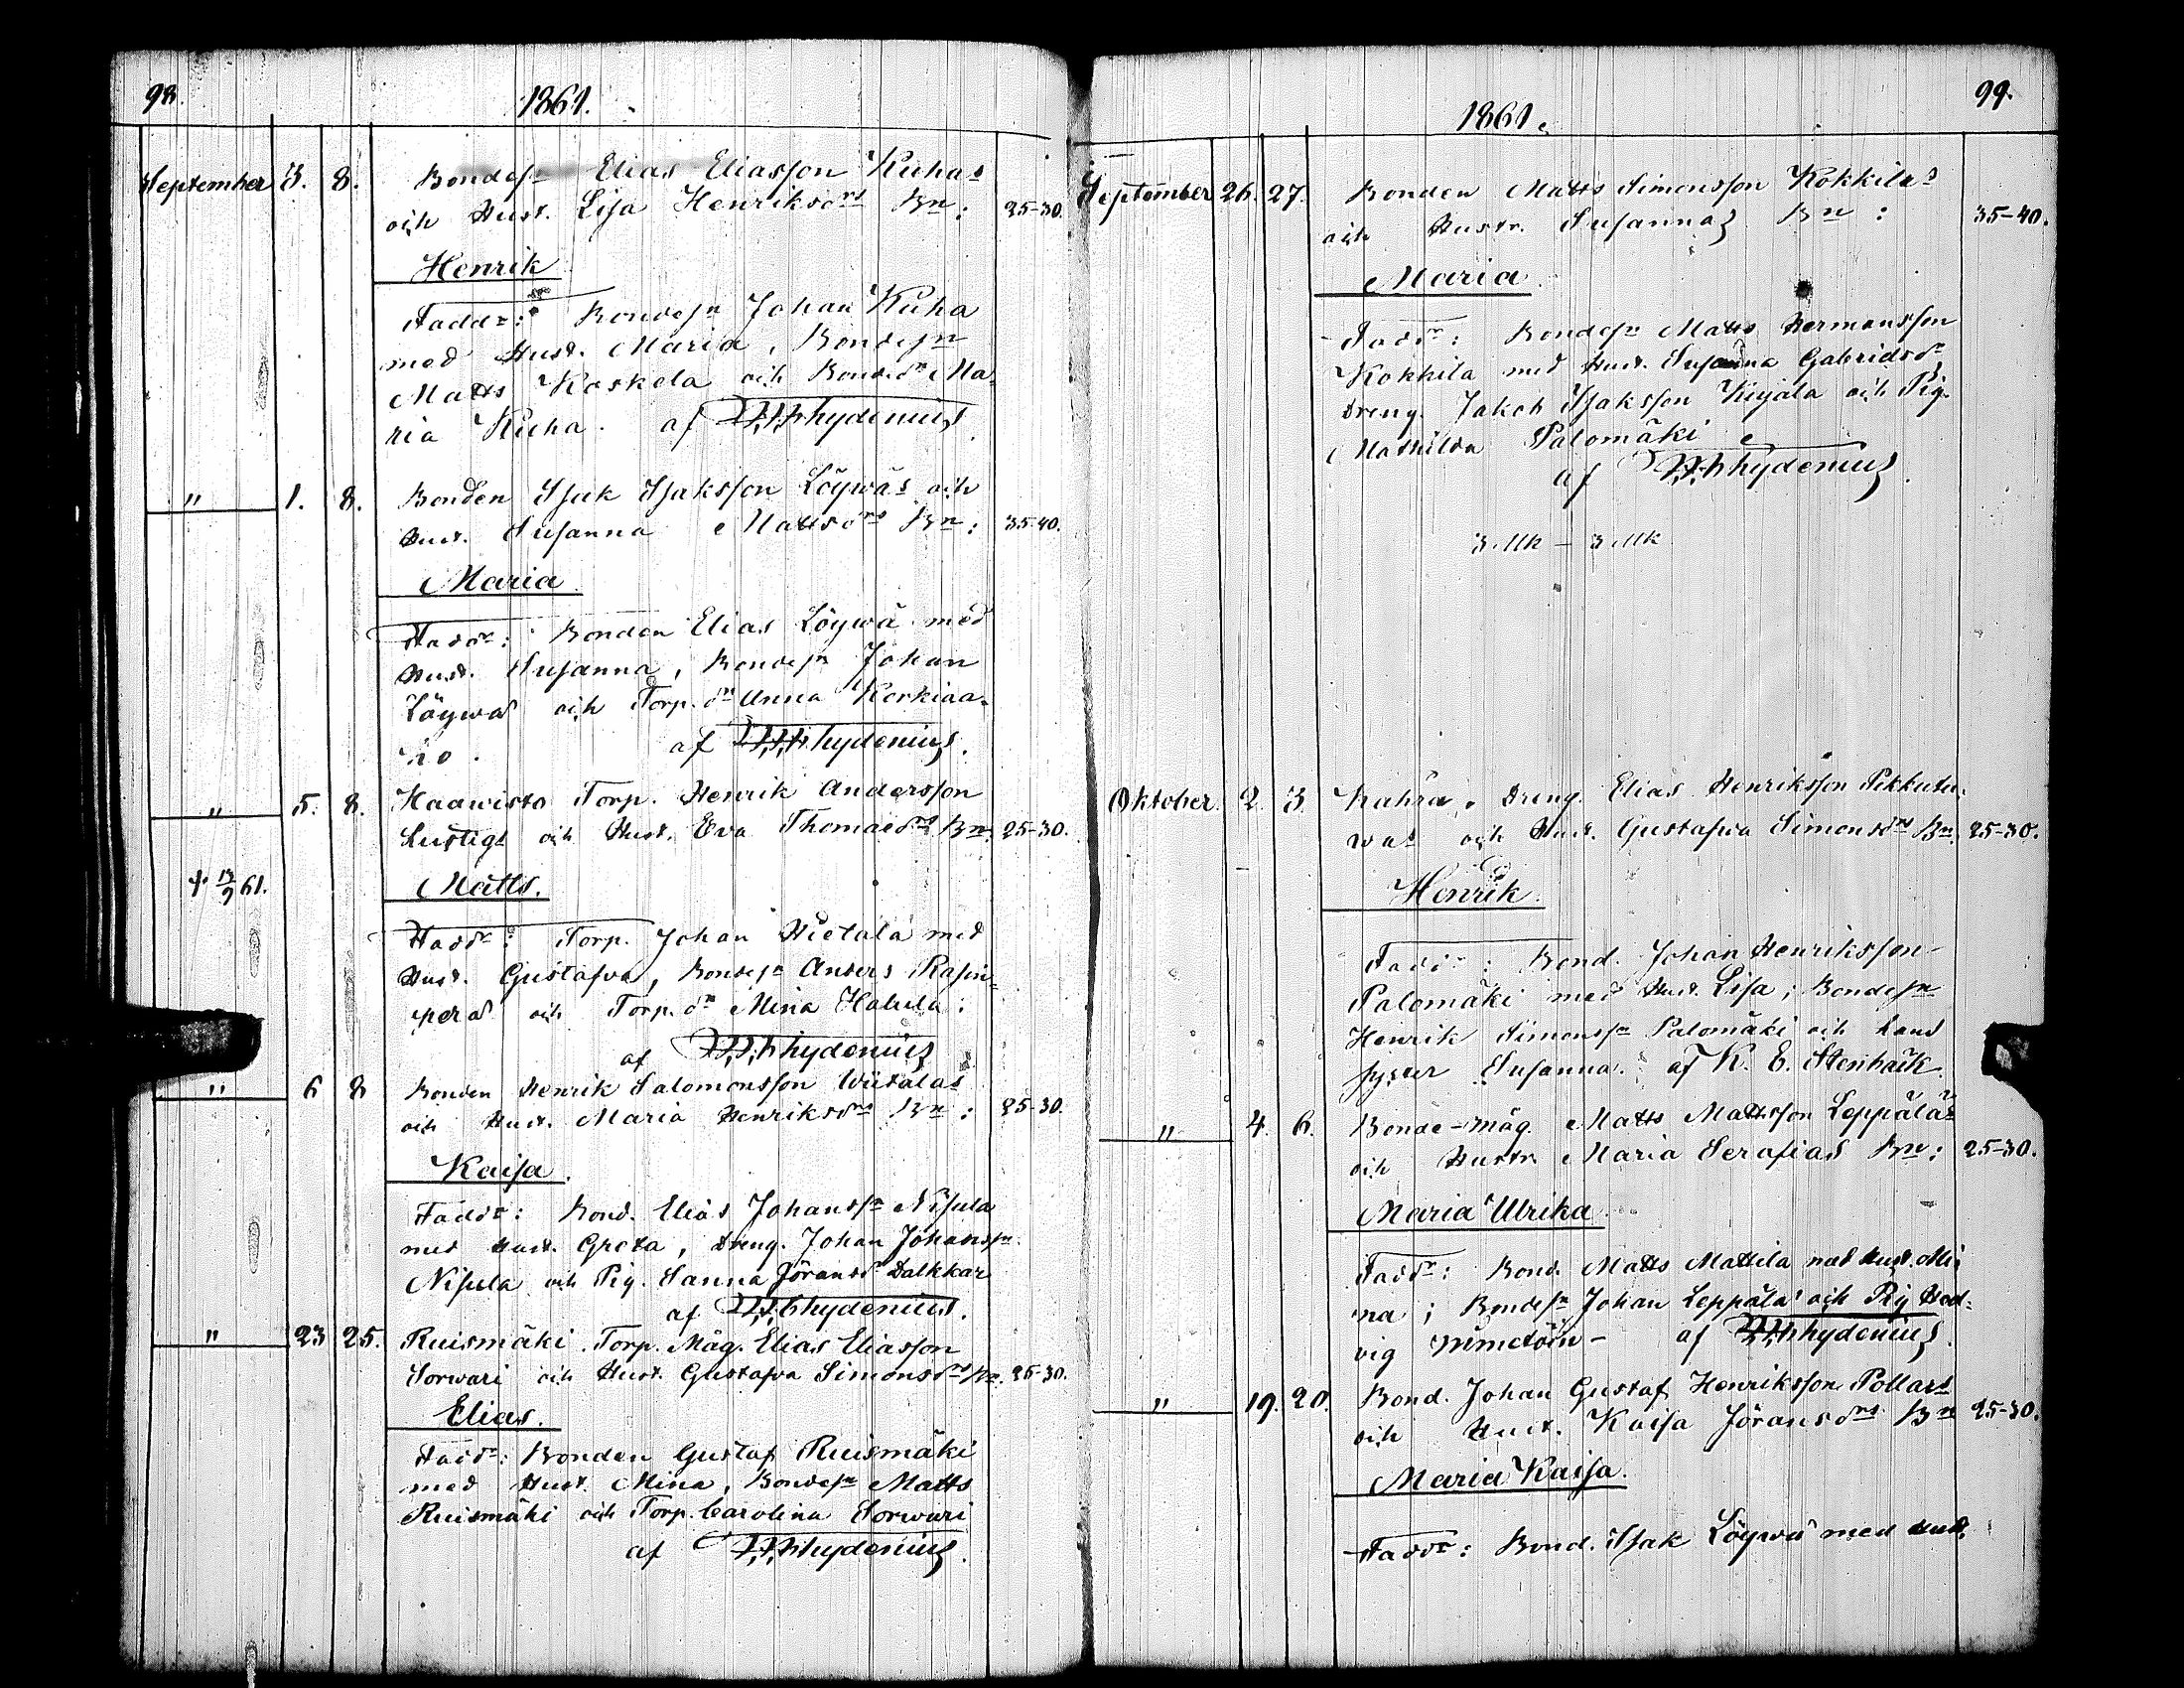 98.
1861.
September 3. 8. Bondesn Elias Eliasson Kuhas
och Hust. Lisa Henriksdrs Bn: 25-30.
Henrik
Faddr: Bondesn Johan Kuha
med Hust. Maria, Bondesn
Matts Koskela och Bonded. Ma-
ria Kuha. af hydenius
" 1. 8. Bonden Isak Isaksson Löywäs och
Hust. Susanna Mattsdrs Bn: 35-40.
Maria
Faddr: Bonden Elias Löywä med
Hust. Susanna, Bondesn Johan
Löywä och Torp. dr Anna Korkiaa-
ho. af hydenius.
" 5. 8. Haawisto Torp. Henrik Andersson
Lustigs och Hust. Eva Thomasdrs Bn. 25-30.
† 61. Matts.
Faddr: Torp. Johan Hietala med
Hust. Gustafva, Bondesn Anders Rasin-
perä och Torp. dr Mina Hakula:
af hydenius
" 6 8 Bonden Henrik Salomonsson Wiitalas
och Hust. Maria Henriksdrs Bn: 25-30.
Kaisa.
Faddr: Bond. Elias Johanssn Nisula
med Hust. Greta, Dreng. Johan Johanssn
Nisula och Pig. Sanna Jöransdr Dalkkar
af hydenius.
" 23 25. Ruismäki Torp. Måg. Elias Eliasson
Sorwari och Hust. Gustafva Simonsdrs Bn. 25-30.
Elias.
Faddr: Bonden Gustaf Ruismäki
med Hust. Mina, Bondesn Matts
Ruismäki och Torp. Carolina Sorwari
af hydenius.
99.
1861.
September 26. 27. Bonden Matts Simonsson Kokkilas
och Hustr. Susannas Bn: 35-40.
Maria
Faddr: Bondesn Matts Hermansson
Kokkila med Hust. Susanna Gabrielsdr
Dreng. Jakob Isaksson Kujala och Pig.
Mathilda Palomäki
af hydenius.
3 Mk - 3 Mk
Oktober. 2. 3. Dreng. Elias Henriksson
och Hust. Gustafwa Simonsdrs Bn. 25-30.
Henrik.
Faddr: Bond. Johan Henriksson
Palomäki med Hust. Lisa; Bondesn
Henrik Simonsn Palomäki och hans
syster Susanna. af K. E. Stenbäck.
" 4. 6. Bonde-måg. Matts Mattsson Leppäläs
och Hustr. Maria Serafias Bn: 25-30.
Maria Ulrika
Faddr: Bond. Matts Mattila med Hust. Mi
na; Bondesn Johan Leppälä och Pig Hed-
vig af hydenius.
" 19. 20. Bond. Johan Gustaf Henriksson Pollars
och Hust. Kaisa Jöransdrs Bn 25-30.
Maria Kaisa.
Faddr: Bond. Isak Löywä med Hust.